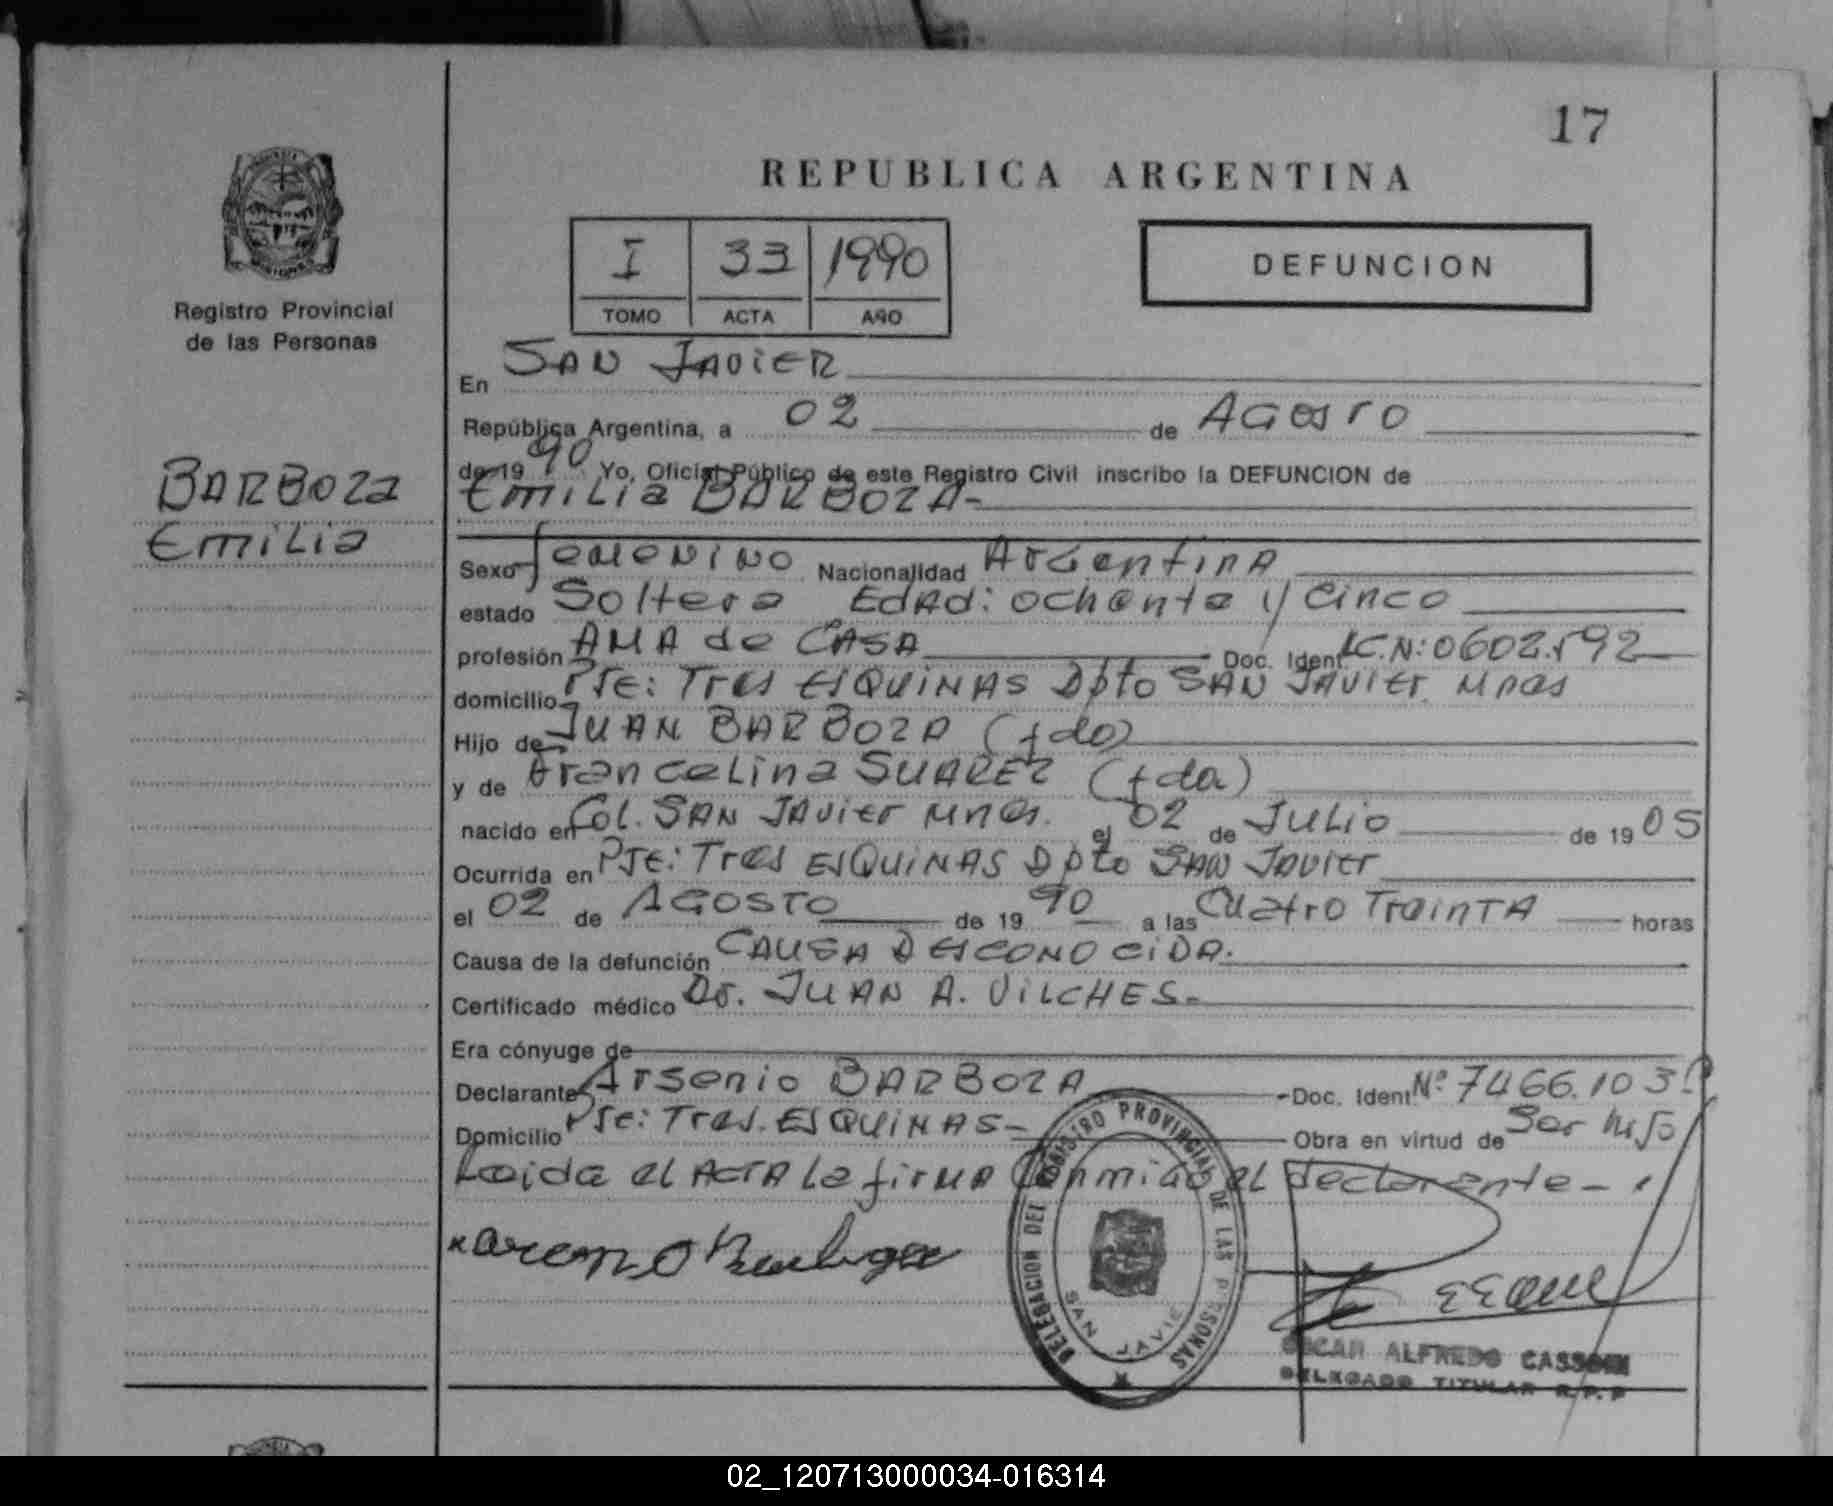 17
REPUBLICA ARGENTINA
I 33 1990
TOMO ACTA AÑO
DEFUNCION
Registro Provincial
de las Personas
BARBOZA
EMILIA
En SAN JAVIER
República Argentina, a 02 de AGOSTO
de 19 90 Yo, Oficial Público de este Registro Civil inscribo la DEFUNCION de
EMILIA BARBOZA-
Sexo femenino Nacionalidad Argentina
estado Soltera Edad: ochenta y cinco
profesión AMA de CASA Doc. Ident. L.C.N: 0602.592
domicilio Pje: Tres ESQUINAS Dpto SAN JAVIER Mnes
Hijo de JUAN BARBOZA (fdo)
y de Francelina SUAREZ (fda)
nacido en Col. SAN JAVIER Mnes. el 02 de JULIO de 19 05
Ocurrida en Pje: Tres ESQUINAS Dpto SAN JAVIER
el 02 de AGOSTO de 19 90 a las Cuatro TreinTA horas
Causa de la defunción CAUSA DESCONOCIDA.
Certificado médico Dr. JUAN A. VILCHES-
Era cónyuge de
Declarante Arsenio BARBOZA Doc. Ident Nº 7466.103
Domicilio Pje: Tres. ESQUINAS- Obra en virtud de Ser hijo
Leida el ACTA La firma Conmigo el declarante-
DELEGACION DEL REGISTRO PROVINCIAL DE LAS PERSONAS
SAN JAVIER
OSCAR ALFREDO
DELEGADO TITULAR R.P.P
02_120713000034-016314